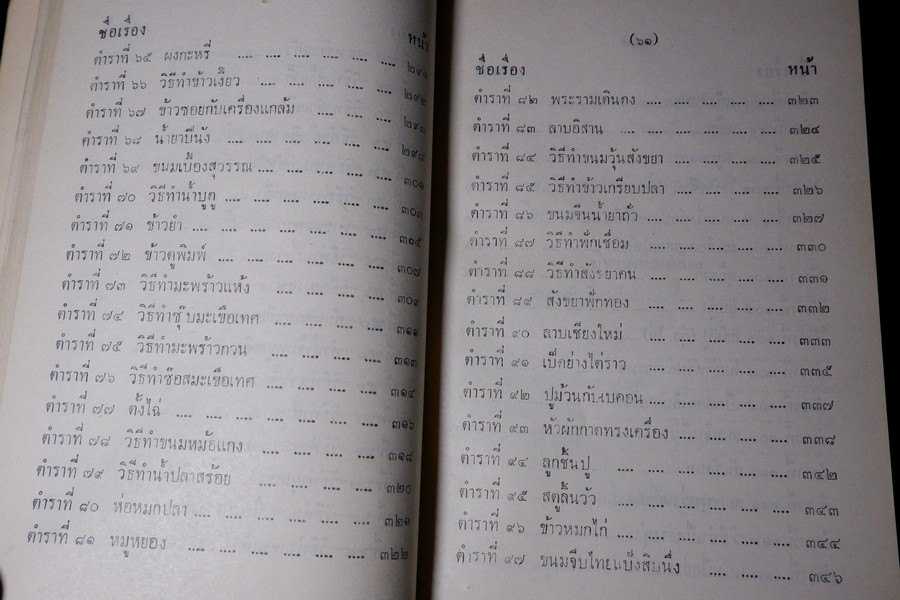 ชื่อเรื่อง หน้า
ตำราที่ ๖๕ ผงกะหรี่ .... .... .... .... .... ๒๙๑
ตำราที่ ๖๖ วิธีทำข้าวเงี้ยว .... .... .... .... ๒๙๒
ตำราที่ ๖๗ ข้าวซอยกับเครื่องแกล้ม .... .... .... ๒๙๓
ตำราที่ ๖๘ น้ำยาปีนัง .... .... .... .... .... ๒๙๘
ตำราที่ ๖๙ ขนมเบื้องสุวรรณ .... .... .... .... ๓๐๑
ตำราที่ ๗๐ วิธีทำน้ำบูดู .... .... .... .... .... ๓๐๓
ตำราที่ ๗๑ ข้าวยำ .... .... .... .... .... .... ๓๐๕
ตำราที่ ๗๒ ข้าวตูพิมพ์ .... .... .... .... .... ๓๐๗
ตำราที่ ๗๓ วิธีทำมะพร้าวแห้ง .... .... .... .... ๓๐๙
ตำราที่ ๗๔ วิธีทำซุ๊บมะเขือเทศ .... .... .... .... ๓๑๑
ตำราที่ ๗๕ วิธีทำมะพร้าวกวน .... .... .... .... ๓๑๓
ตำราที่ ๗๖ วิธีทำซ๊อสมะเขือเทศ .... .... .... .... ๓๑๔
ตำราที่ ๗๗ ตั้งไฉ่ .... .... .... .... .... .... ๓๑๖
ตำราที่ ๗๘ วิธีทำขนมหม้อแกง .... .... .... .... ๓๑๘
ตำราที่ ๗๙ วิธีทำน้ำปลาสร้อย .... .... .... .... ๓๒๐
ตำราที่ ๘๐ ห่อหมกปลา .... .... .... .... .... ๓๒๑
ตำราที่ ๘๑ หมูหยอง .... .... .... .... .... ๓๒๒
(๖๑)
ชื่อเรื่อง หน้า
ตำราที่ ๘๒ พระรามเดินดง .... .... .... .... .... ๓๒๓
ตำราที่ ๘๓ ลาบอิสาน .... .... .... .... .... ๓๒๔
ตำราที่ ๘๔ วิธีทำขนมวุ้นสังขยา .... .... .... .... ๓๒๕
ตำราที่ ๘๕ วิธีทำข้าวเกรียบปลา .... .... .... .... ๓๒๖
ตำราที่ ๘๖ ขนมจีนน้ำยาถั่ว .... .... .... .... .... ๓๒๗
ตำราที่ ๘๗ วิธีทำฟักเชื่อม .... .... .... .... .... ๓๓๐
ตำราที่ ๘๘ วิธีทำสังขยาคน .... .... .... .... .... ๓๓๑
ตำราที่ ๘๙ สังขยาฟักทอง .... .... .... .... .... ๓๓๒
ตำราที่ ๙๐ ลาบเชียงใหม่ .... .... .... .... .... ๓๓๓
ตำราที่ ๙๑ เป็ดย่างไต่ราว .... .... .... .... .... ๓๓๕
ตำราที่ ๙๒ ปูม้วนกับเบคอน .... .... .... .... .... ๓๓๗
ตำราที่ ๙๓ หัวผักกาดทรงเครื่อง .... .... .... .... ๓๓๘
ตำราที่ ๙๔ ลูกชิ้นปู .... .... .... .... .... ๓๔๒
ตำราที่ ๙๕ สตูลิ้นวัว .... .... .... .... .... ๓๔๓
ตำราที่ ๙๖ ข้าวหมกไก่ .... .... .... .... .... ๓๔๔
ตำราที่ ๙๗ ขนมจีบไทยแป้งสิบนึ่ง .... .... .... ๓๔๖